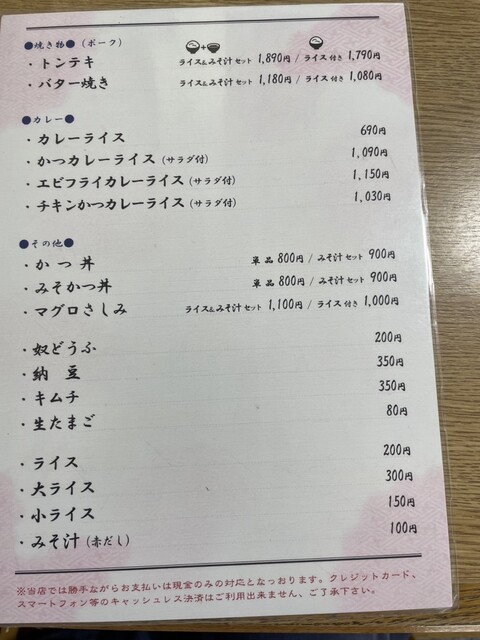 ●焼き物●（ポーク）
・トンテキ ライス&みそ汁セット 1,890円 / ライス付き 1,790円
・バター焼き ライス&みそ汁セット 1,180円 / ライス付き 1,080円
●カレー●
・カレーライス 690円
・かつカレーライス（サラダ付） 1,090円
・エビフライカレーライス（サラダ付） 1,150円
・チキンかつカレーライス（サラダ付） 1,030円
●その他●
・かつ丼 単品 800円 / みそ汁セット 900円
・みそかつ丼 単品 800円 / みそ汁セット 900円
・マグロさしみ ライス&みそ汁セット 1,100円 / ライス付き 1,000円
・奴どうふ 200円
・納豆 350円
・キムチ 350円
・生たまご 80円
・ライス 200円
・大ライス 300円
・小ライス 150円
・みそ汁（赤だし） 100円
※当店では勝手ながらお支払いは現金のみの対応となっております。クレジットカード、
スマートフォン等のキャッシュレス決済はご利用出来ません、ご了承下さい。